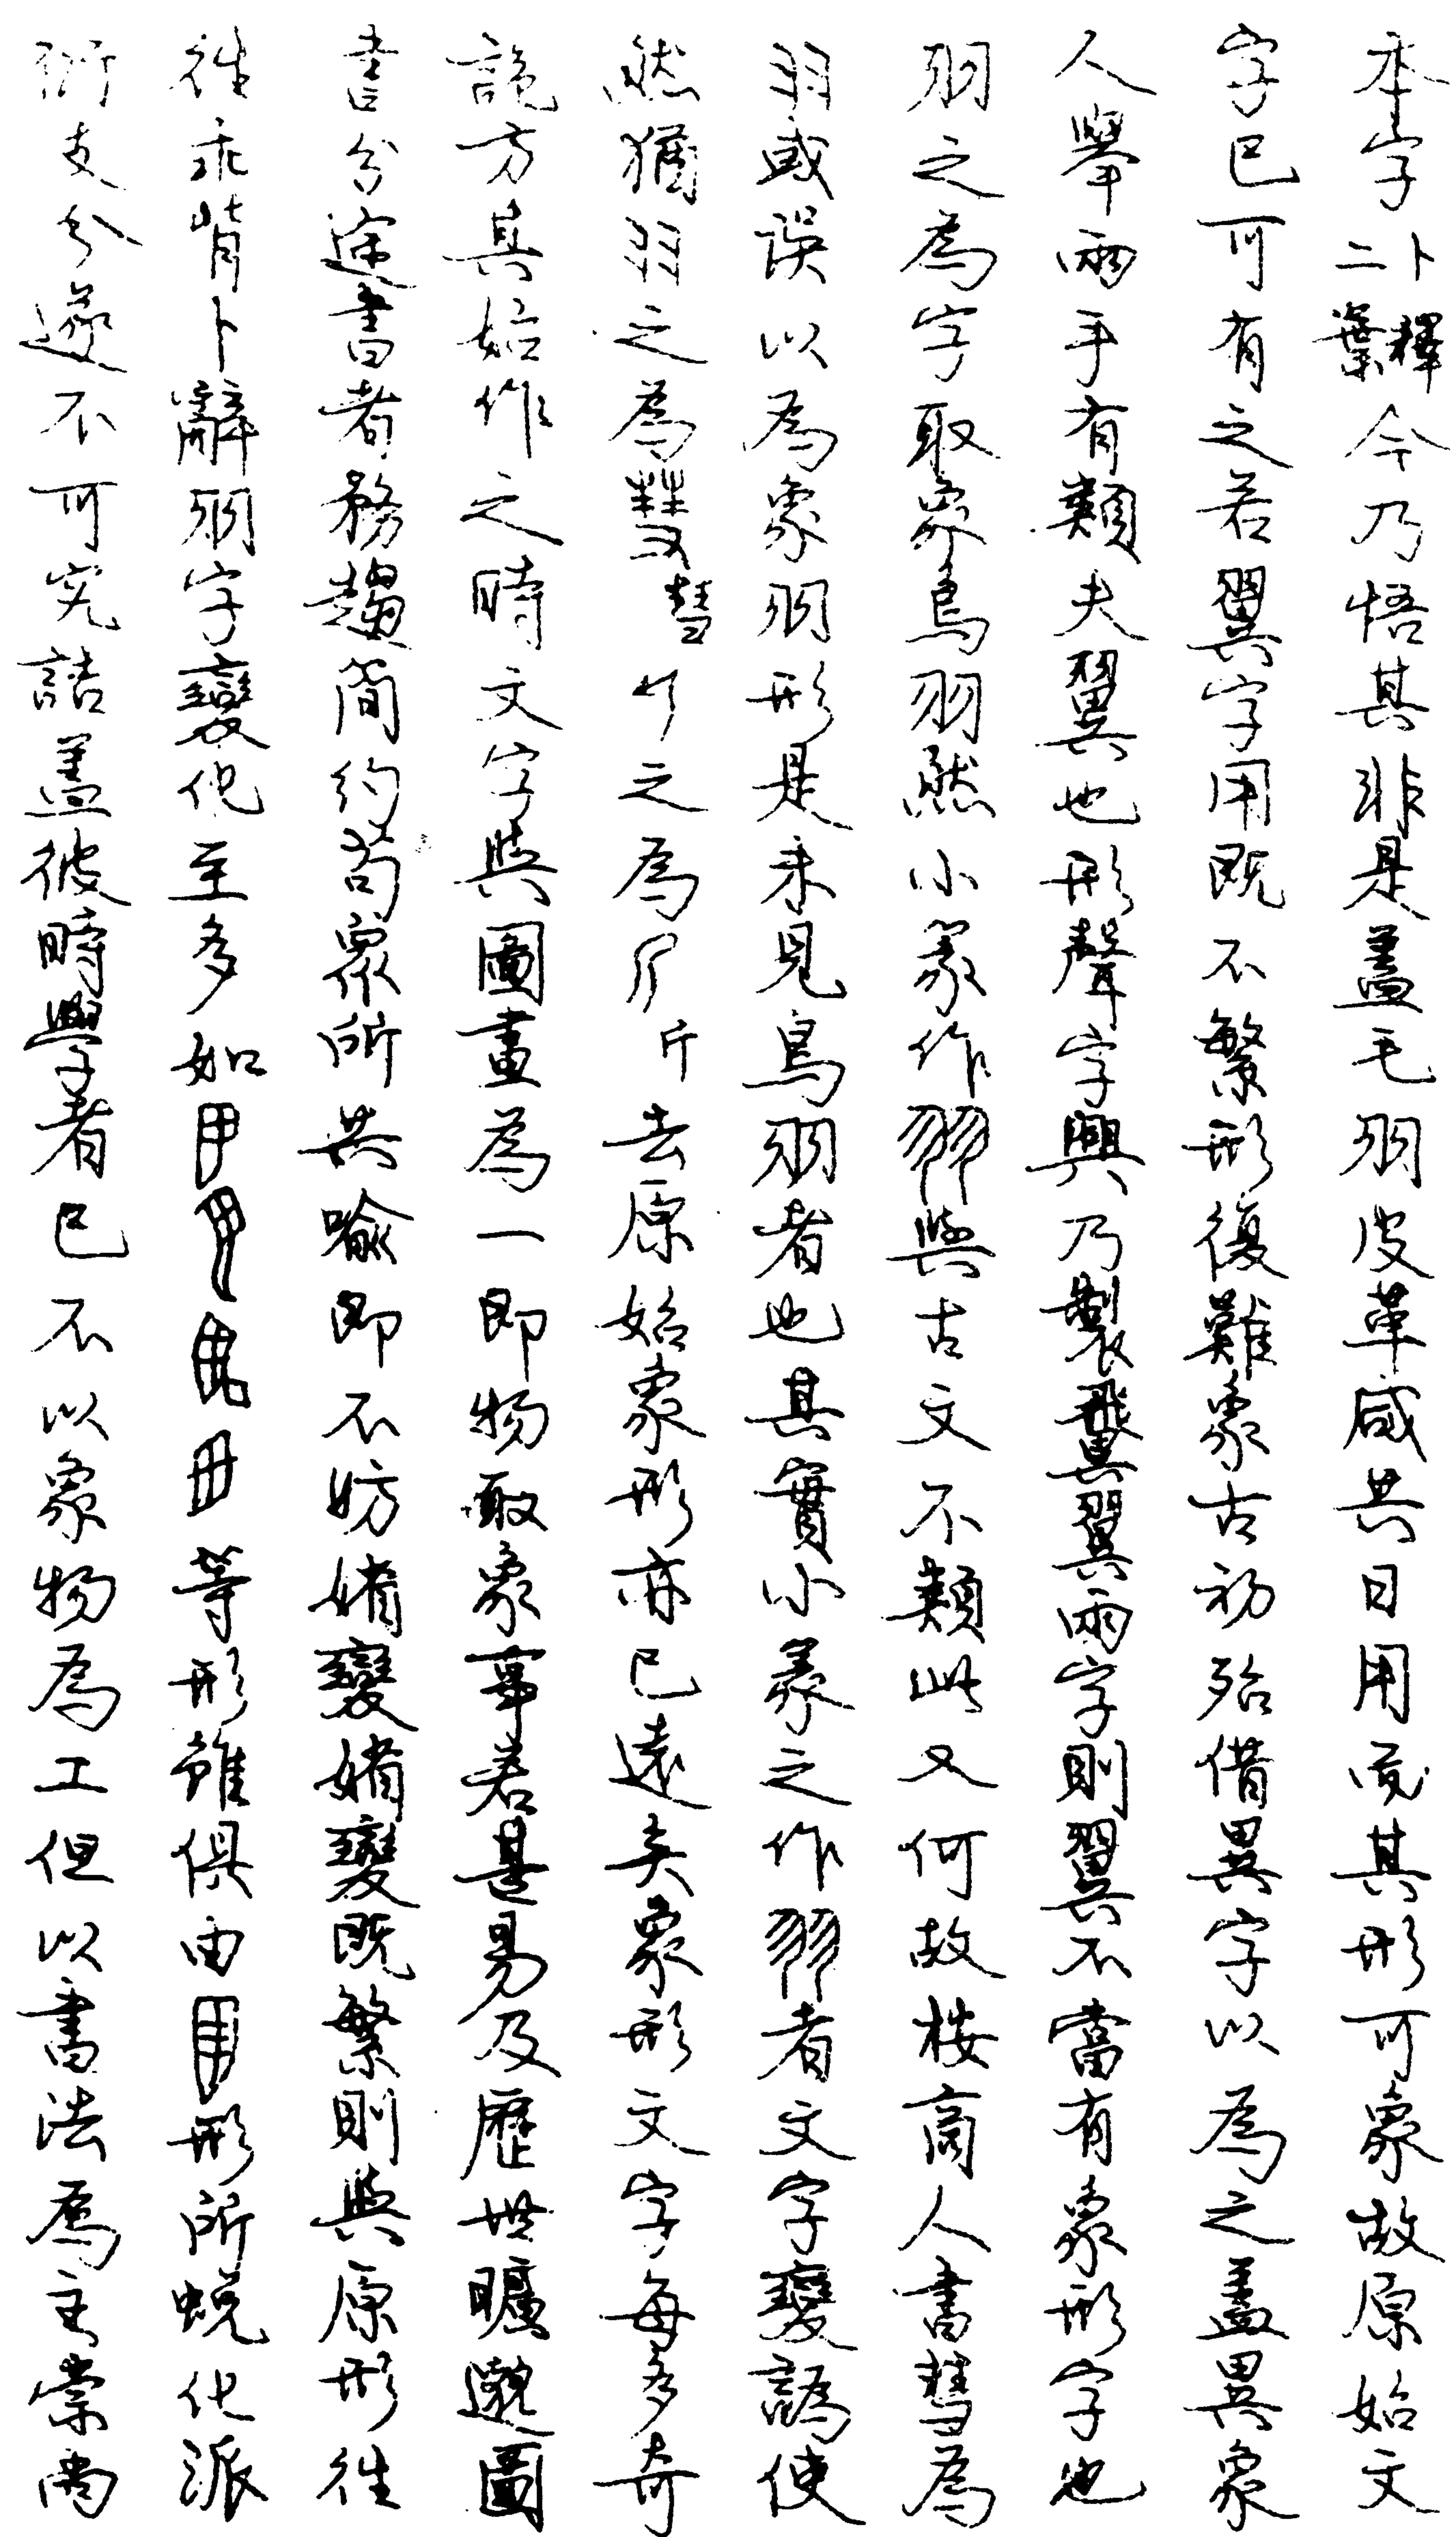 本字卜釋二葉今乃悟其非是蓋毛羽皮革咸共日用而其形可象故原始文
字已可有之若翼字用既不繁形復難象古初殆借異字以為之蓋異象
人舉兩手有類夫翼也形聲字興乃製翼兩字則翼不當有象形字也
羽之為字取象鳥羽然小篆作與古文不類此又何故按商人書彗為
羽或誤以為象羽形是未見鳥羽者也其實小篆之作者文字變譌使
然猶羽之為彗之為斤去原始象形亦已遠矣象形文字每多奇
詭方其始作之時文字與圖畫為一即物取象事若甚易及歷世曠邈圖
書分途書者務趨簡約苟眾所共喻即不妨媘變媘變既繁則與原形往
往乖背卜辭羽字變化至多如等形雖俱由形所蛻化派
衍支分遂不可究詰蓋彼時學者已不以象物為工但以書法為主崇尚